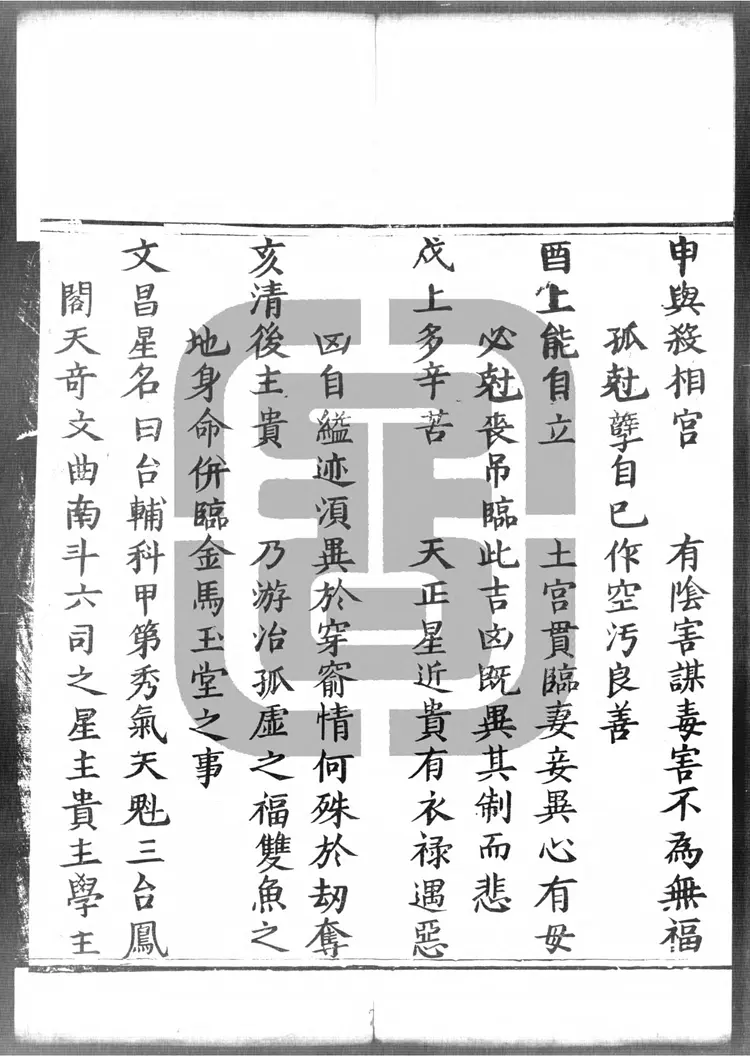 申與殺相宫　有陰害謀毒害不為無福
孤尅孽自已作空汚良善
酉上能自立　土宫貫臨妻妾異心有毋
必尅喪吊臨此吉凶既異其制而悲
戌上多辛苦　天正星近貴有衣禄遇惡
凶自縊迹湏異於穿窬情何殊於刧奪
亥清後主貴　乃游冶孤虛之福雙魚之
地身命併臨金馬玉堂之事
文昌星名曰台輔科甲第秀氣天魁三台鳳
閣天竒文曲南斗六司之星主貴主學主